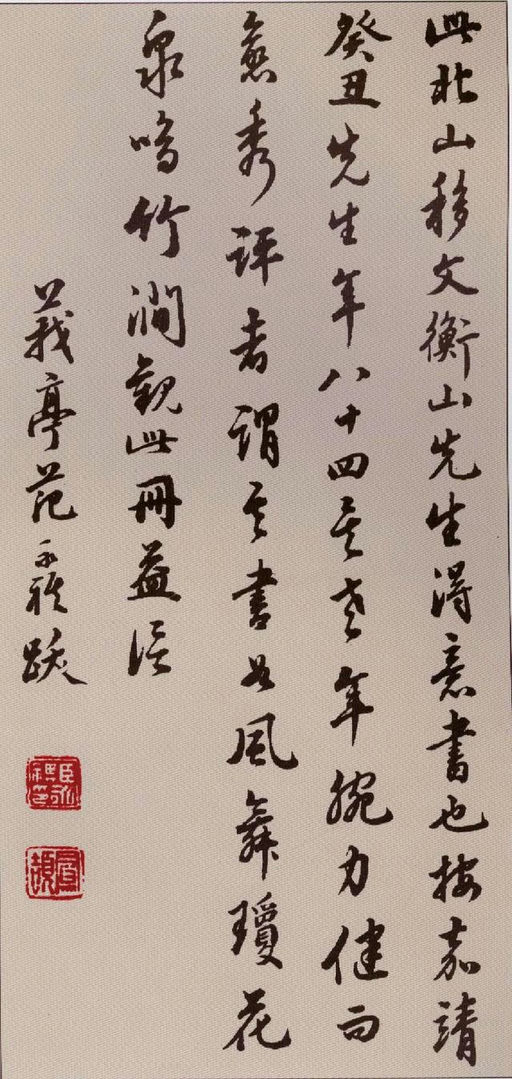 此北山移文衡山先生得意書也按嘉靖
癸丑先生年八十四矣老年腕力健而
愈秀評者謂其書如風舞瓊花
泉鳴竹澗觀此冊益信
莪亭范永祺跋